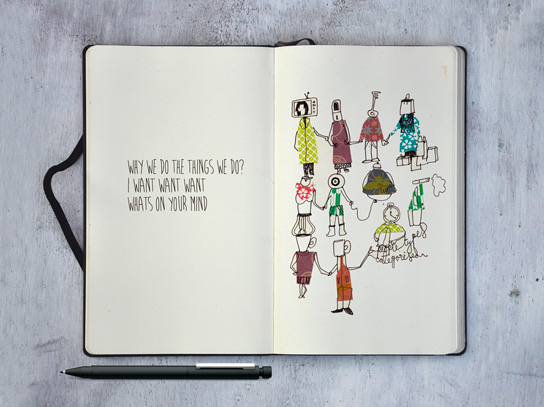 WHY WE DO THE THINGS WE DO?
I WANT WANT WANT
WHATS ON YOUR MIND
people types